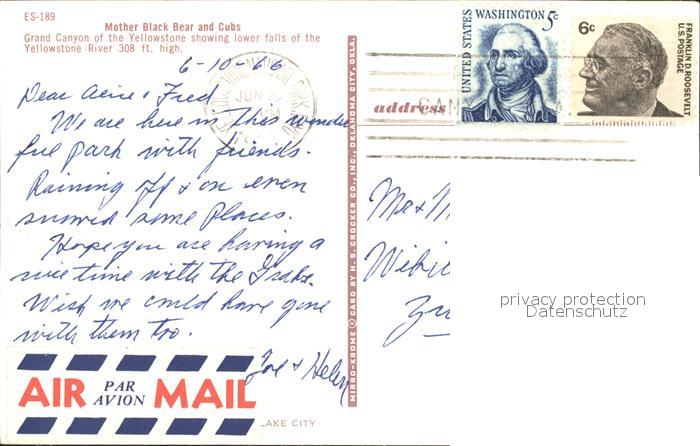 ES-189
Mother Black Bear and Cubs
Grand Canyon of the Yellowstone showing lower falls of the
Yellowstone River 308 ft. high.
6-10-66
Dear & Fred
We are here in this wonder
ful park with friends.
Raining off & on even
snowed some places.
Hope you are having a
nice time with the
Wish we could have gone
with them too.
Joe & Helen
AIR PAR AVION MAIL
LAKE CITY
MIRRO-KROME ® CARD BY H. S. CROCKER CO., INC., OKLAHOMA CITY, OKLA.
JUN
address
UNITED STATES
WASHINGTON 5c
6c
FRANKLIN D. ROOSEVELT
U.S. POSTAGE
Mr & M
privacy protection
Datenschutz